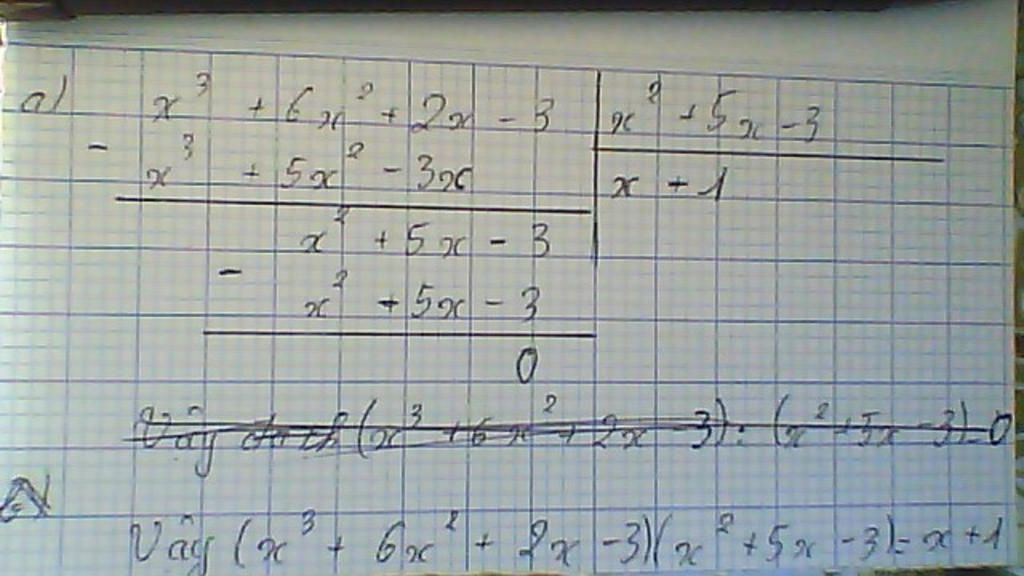 a) x³ + 6x² + 2x - 3 | x² + 5x - 3
- x³ + 5x² - 3x | x + 1
x² + 5x - 3
- x² + 5x - 3
0
Vậy (x³ + 6x² + 2x - 3) : (x² + 5x - 3) = 0
Vậy (x³ + 6x² + 2x - 3)(x² + 5x - 3) = x + 1